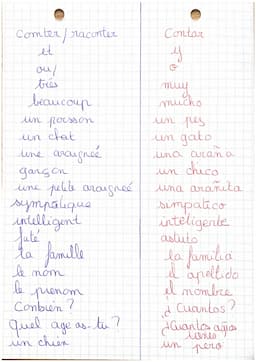 Comter/raconter Contar
et y
ou/ o
très muy
beaucoup mucho
un poisson un pez
un chat un gato
une araigneé una araña
garçon un chico
une petite araigneé una arañita
sympatique simpatico
intelligent inteligente
futé astuto
la famille la familia
le nom el apellido
le prenom el nombre
Conbién? ¿Cuantos?
Quel age as-tu? ¿Cuantos años
tienes?
un chien un pero